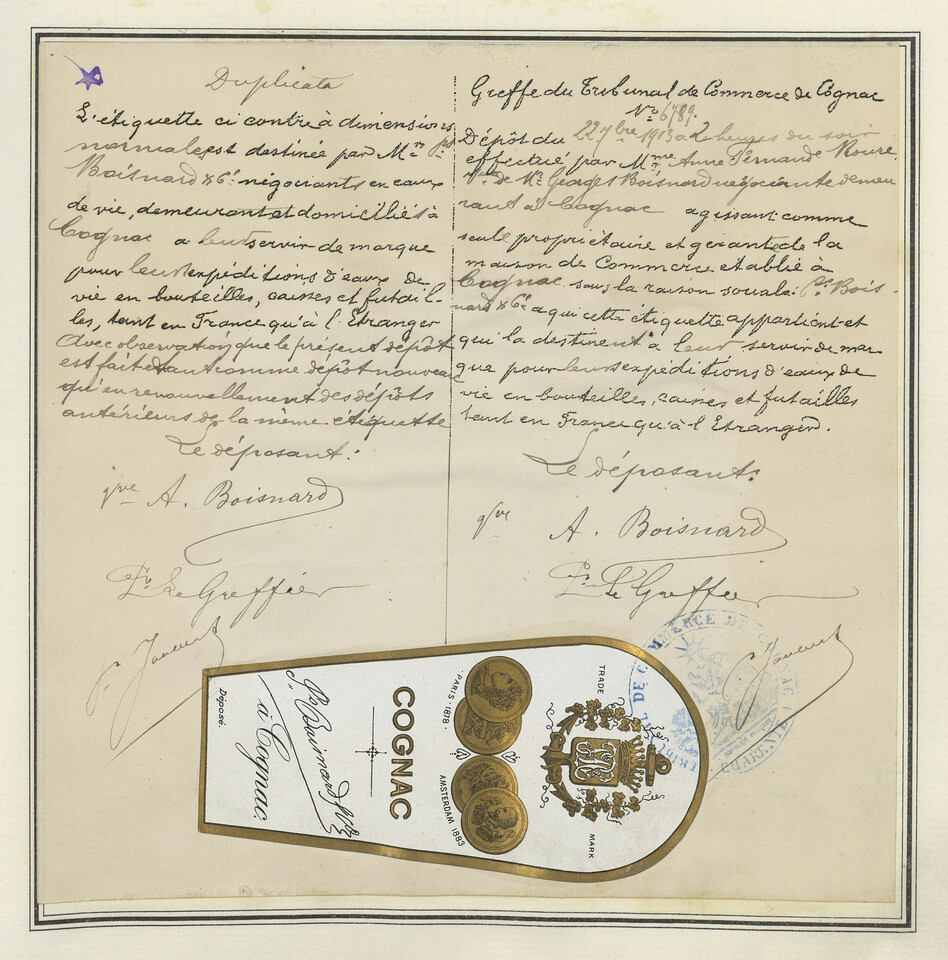 Duplicata
L'étiquette ci contre à dimensions
normales est destinée par Mrs Ps
Boisnard & Cie négociants en eaux
de vie, demeurant et domiciliés à
Cognac à leur servir de marque
pour leurs expéditions d'eaux de
vie en bouteilles, caisses et futail-
les, tant en France qu'à l'Etranger
Avec observation que le présent dépôt
est fait tant comme dépôt nouveau
qu'en renouvellement des dépôts
antérieurs de la même étiquette
Le déposant:
A. Boisnard
Pr Le Greffier
Greffe du Tribunal de Commerce de Cognac
No 6789.
Dépôt du 22 7bre 1913 à 2 heures du soir
effectué par Mme Anne Fernande Roure
Vve de Mr Georges Boisnard négociante demeu
rant à Cognac agissant comme
seule propriétaire et gérante de la
maison de Commerce etablie à
Cognac sous la raison sociale: Ps Bois-
nard & Cie à qui cette étiquette appartient et
qui la destinent à leur servir de mar
que pour leurs expéditions d'eaux de
vie en bouteilles, caisses et futailles
tant en France qu'à l'Etranger.
Le déposant:
A. Boisnard
Pr Le Greffier
TRIBUNAL DE COMMERCE DE COGNAC
CHARENTE
TRADE MARK
PARIS-1878.
AMSTERDAM 1883
COGNAC
Ps Boisnard & Cie
à Cognac.
Déposé.